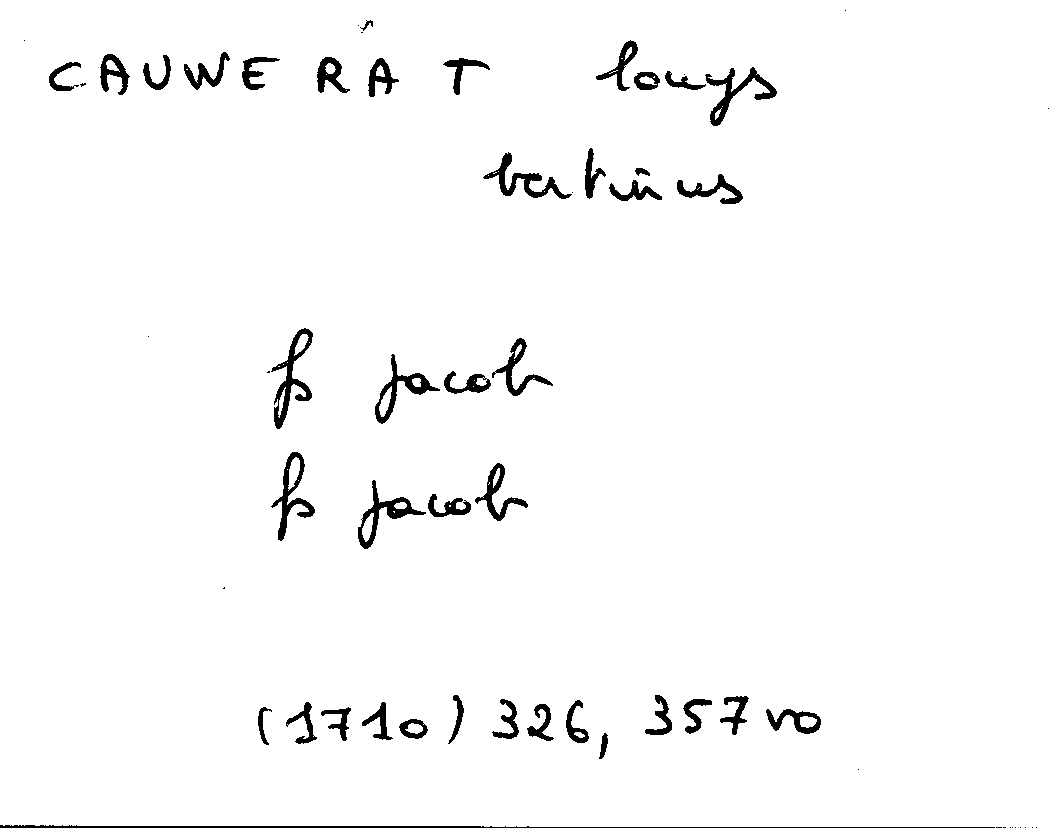 CAUWERAT louys
bertinus
fs jacob
fs jacob
(1710) 326, 357 vo